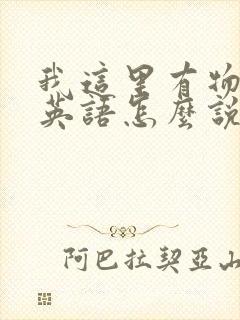 我這里有物
英語怎麼說
阿巴拉契亞山